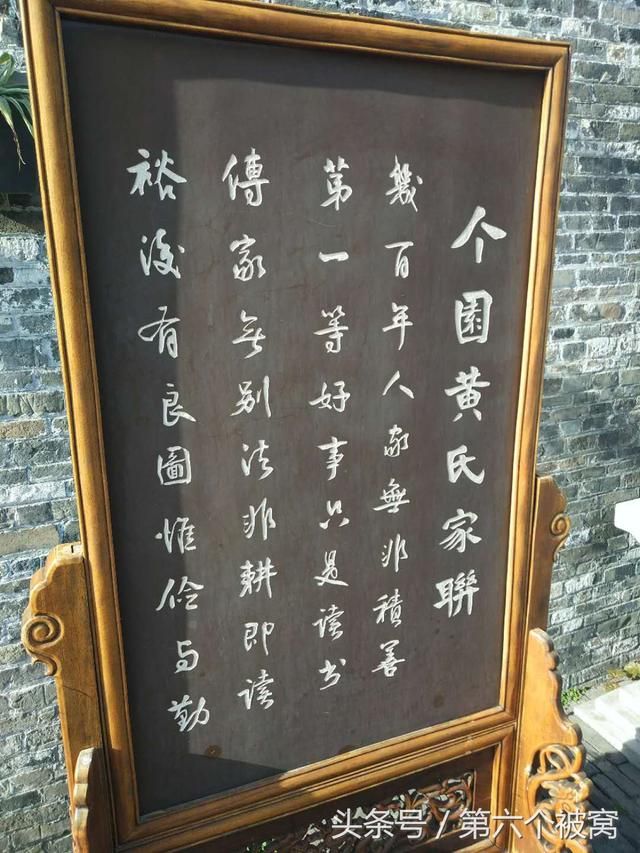 个園黄氏家聯
幾百年人家無非積善
第一等好事只是读书
傳家無别法非耕即读
裕後有良圖惟俭与勤
头条号／第六个被窝